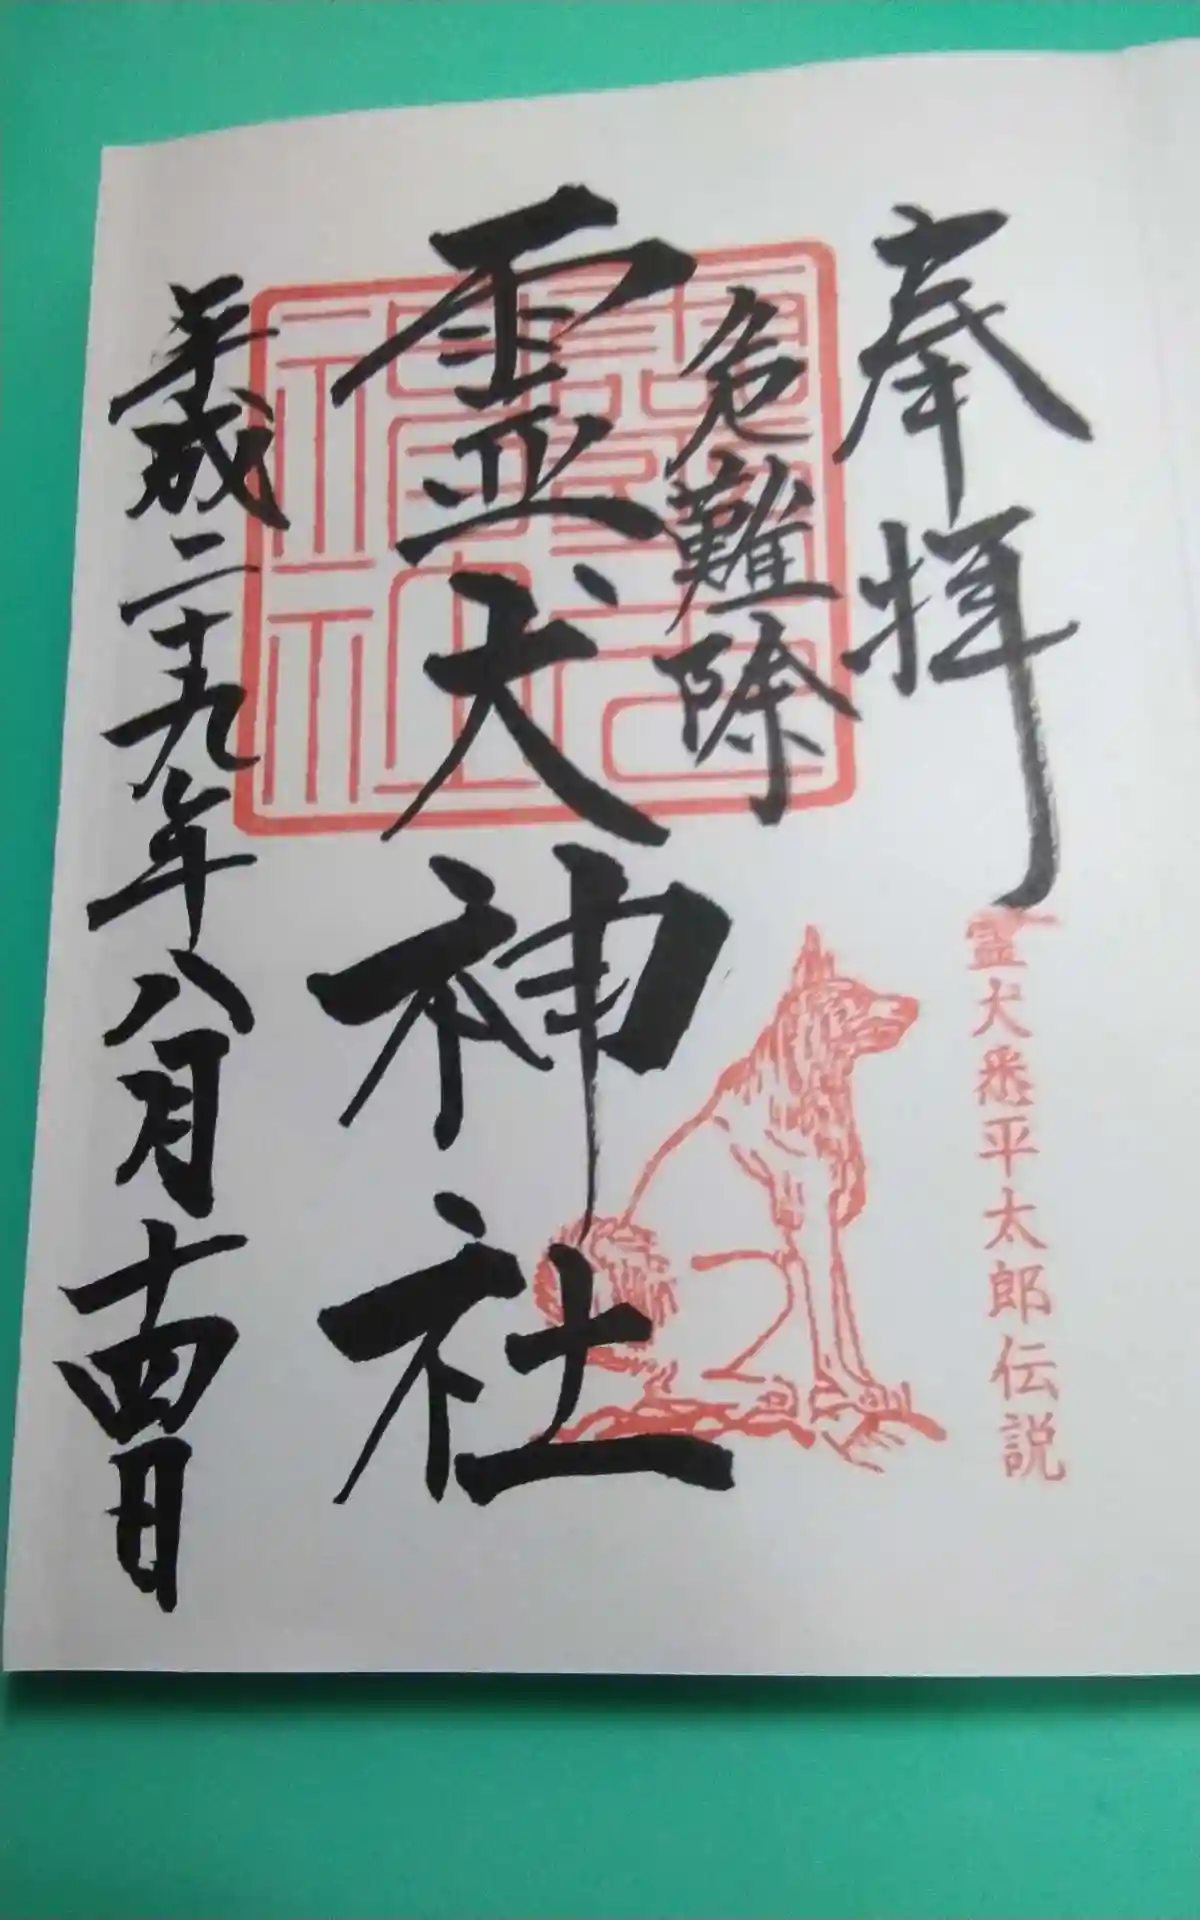 奉拝
霊犬悉平太郎伝説
危難除
霊犬神社
平成二十九年八月十四日